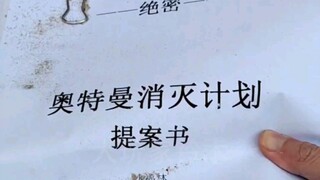 绝密
奥特曼消灭计划
提案书